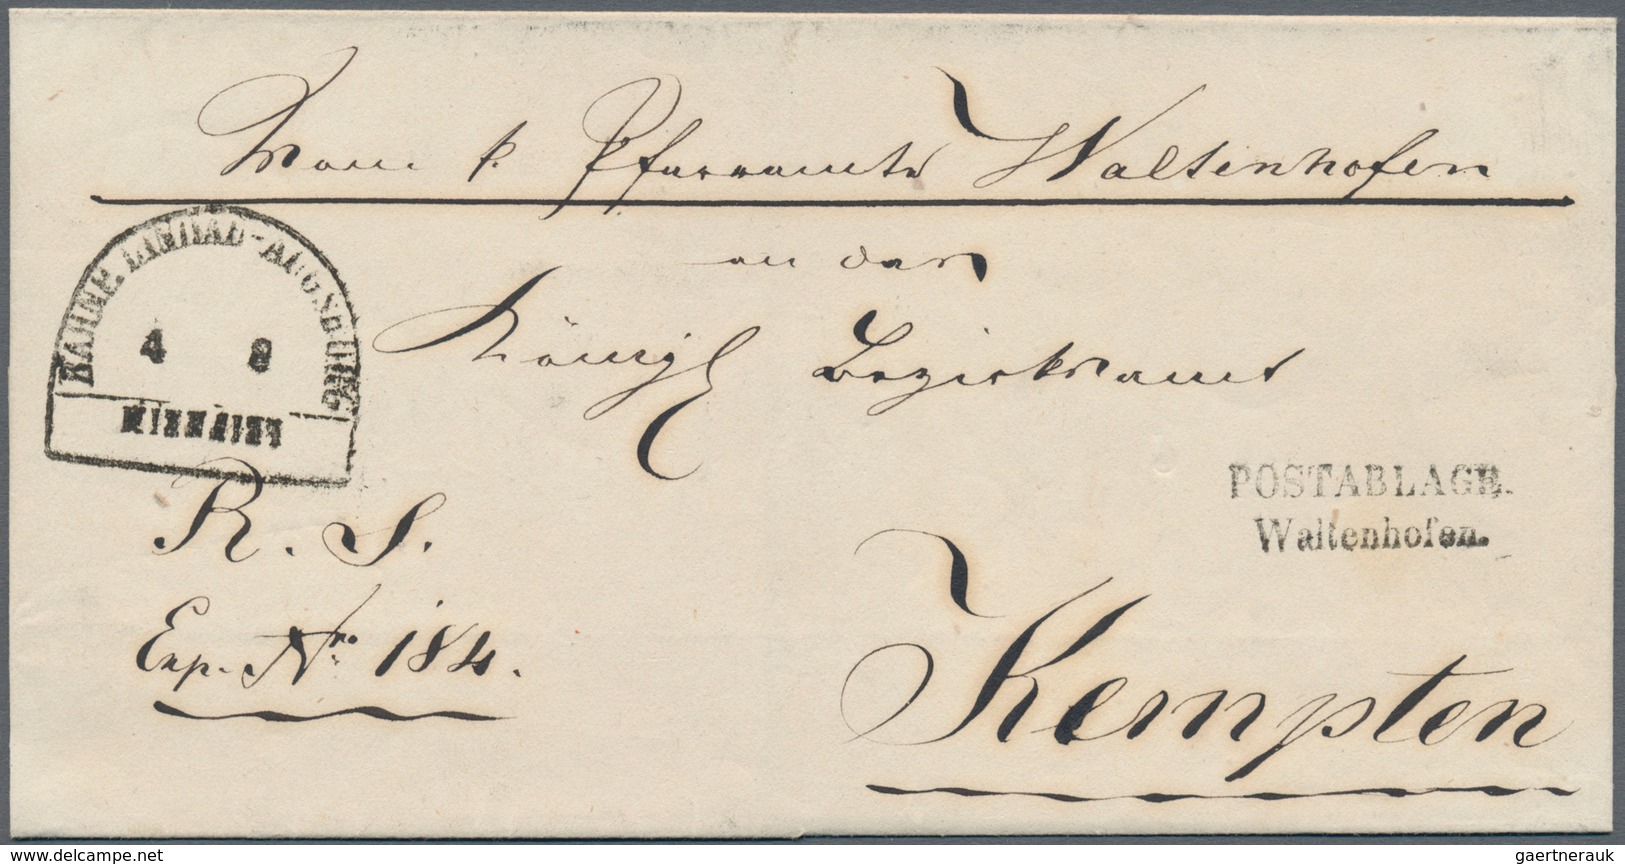 Vom k. Pfarramte Waltenhofen
an das
Königl Bezirksamt
BAHNP. LINDAU-AUGSBURG
4 8
POSTABLAGE.
Waltenhofen.
R. S.
Exp. Nro. 184.
Kempten
www.delcampe.net
gaertnerauk